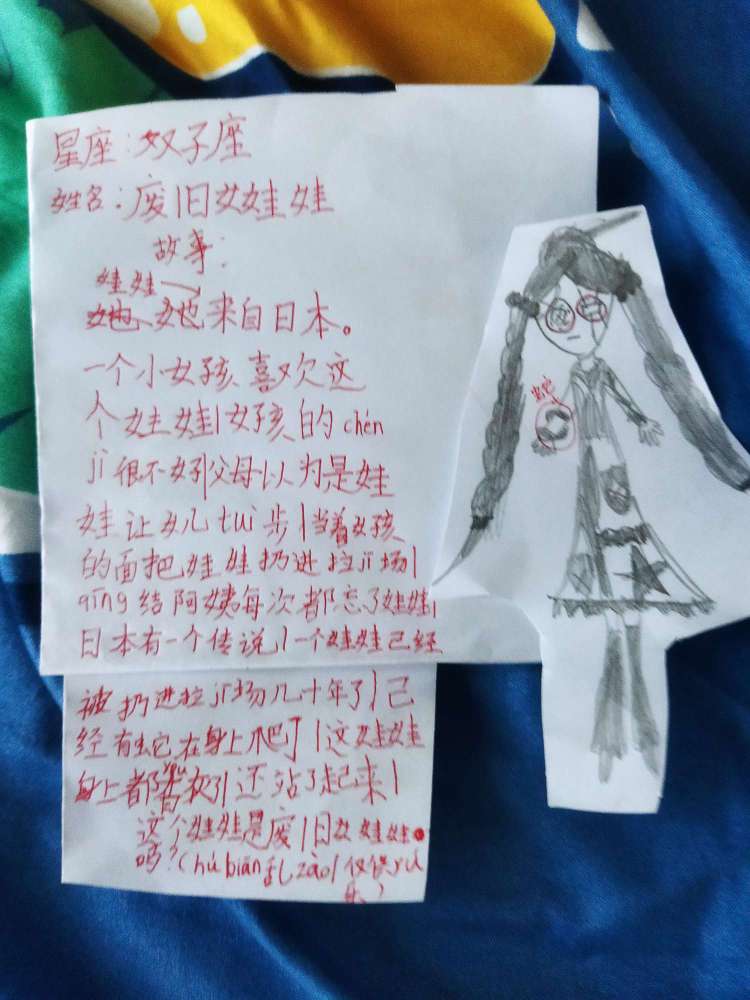 星座：双子座
姓名：废旧女娃娃
故事：
娃娃
她来自日本。
一个小女孩喜欢这
个娃娃|女孩的chén
jī很不好|父母以为是娃
娃让女儿tuì步|当着女孩
的面把娃娃扔进拉jī场|
qīng结阿姨每次都忘了娃娃|
日本有一个传说|一个娃娃已经
被扔进拉jī场几十年了|已
经有蛇在身上爬了|这娃娃
身上都yǒu灰了|还站了起来|
这个娃娃是废旧女娃娃
吗？(hú biān乱zào|仅供yú
乐)
蛇
废
旧